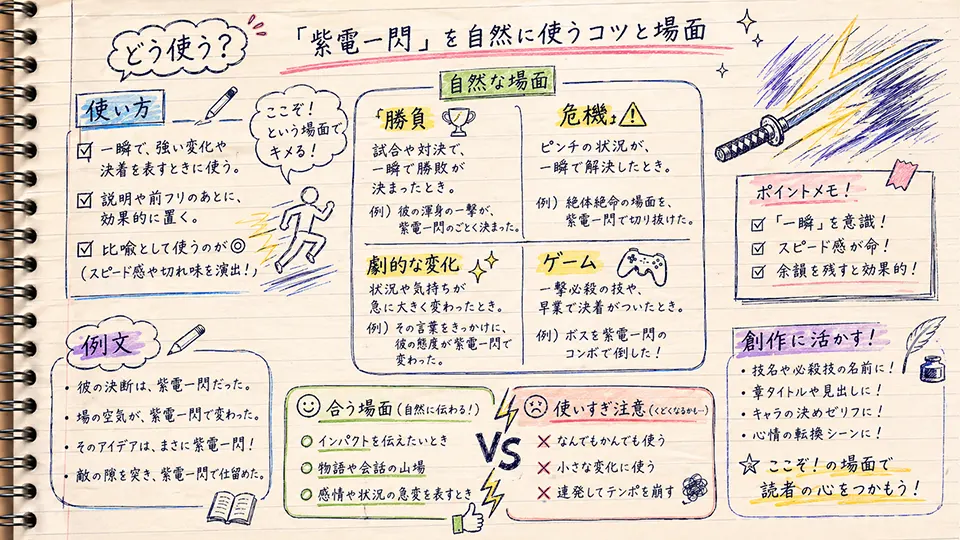 どう使う?
「紫電一閃」を自然に使うコツと場面
使い方
一瞬で、強い変化や
決着を表すときに使う。
説明や前フリのあとに、
効果的に置く。
比喩として使うのが◎
(スピード感や切れ味を演出!)
ここぞ!
という場面で、
キメる!
自然な場面
「勝負
試合や対決で、
一瞬で勝敗が
決まったとき。
例) 彼の渾身の一撃が、
紫電一閃のごとく決まった。
危機
ピンチの状況が、
一瞬で解決したとき。
例) 絶体絶命の場面を、
紫電一閃で切り抜けた。
劇的な変化
状況や気持ちが
急に大きく変わったとき。
例) その言葉をきっかけに、
彼の態度が紫電一閃で
変わった。
ゲーム
一撃必殺の技や、
早業で決着がついたとき。
例) ボスを紫電一閃の
コンボで倒した!
ポイントメモ!
「一瞬」を意識!
スピード感が命!
余韻を残すと効果的!
例文
・彼の決断は、紫電一閃だった。
・場の空気が、紫電一閃で変わった。
・そのアイデアは、まさに紫電一閃!
・敵の隙を突き、紫電一閃で仕留めた。
合う場面(自然に伝わる!)
インパクトを伝えたいとき
物語や会話の山場
感情や状況の急変を表すとき
VS
使いすぎ注意(くどくなるかも…)
なんでもかんでも使う
小さな変化に使う
連発してテンポを崩す
創作に活かす!
・技名や必殺技の名前に!
・章タイトルや見出しに!
・キャラの決めゼリフに!
・心情の転換シーンに!
☆ ここぞ!の場面で
読者の心をつかもう!